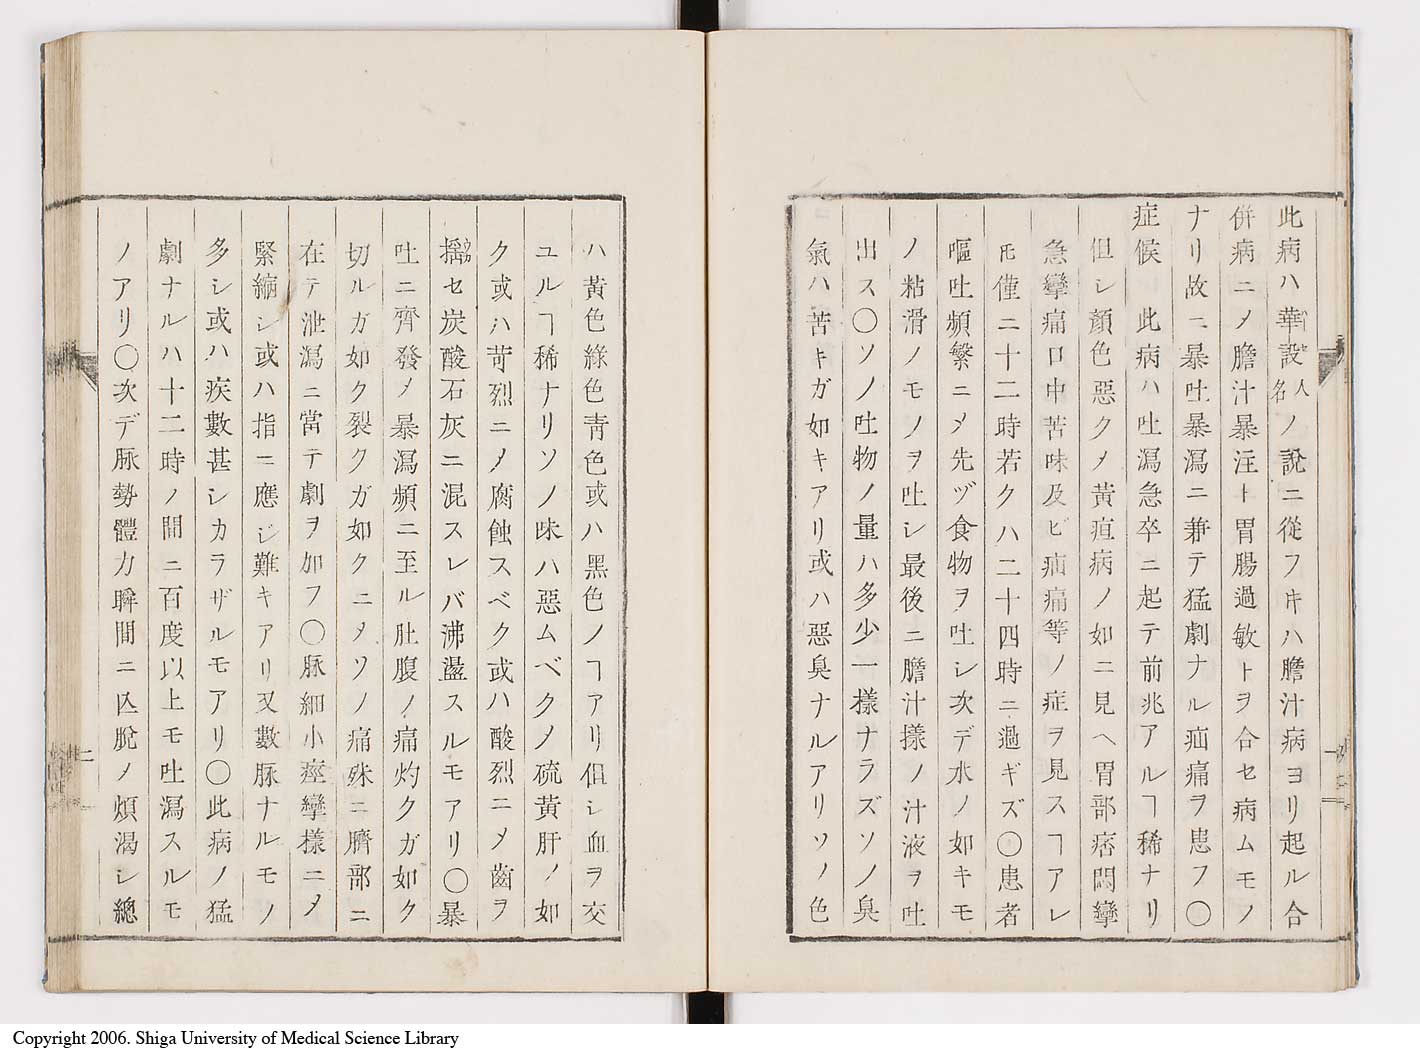 此病ハ華設人名ノ說ニ從フ𪜈ハ膽汁病ヨリ起ル合
併病ニ〆膽汁暴注ト胃腸過敏トヲ合セ病ムモノ
ナリ故ニ暴吐暴瀉ニ兼テ猛劇ナル疝痛ヲ患フ〇
症候 此病ハ吐瀉急卒ニ起テ前兆アルヿ稀ナリ
但シ顏色惡ク〆黃疸病ノ如ニ見ヘ胃部痞悶攣
急攣痛口中苦味及ビ疝痛等ノ症ヲ見スヿアレ
𪜈僅ニ十二時若クハ二十四時ニ過ギズ〇患者
嘔吐頻繁ニ〆先ヅ食物ヲ吐シ次デ水ノ如キモ
ノ粘滑ノモノヲ吐シ最後ニ膽汁樣ノ汁液ヲ吐
出ス〇ソノ吐物ノ量ハ多少一樣ナラズソノ臭
氣ハ苦キガ如キアリ或ハ惡臭ナルアリソノ色
ハ黃色綠色靑色或ハ黑色ノヿアリ但シ血ヲ交
ユルヿ稀ナリソノ味ハ惡ムベク〆硫黃肝ノ如
ク或ハ苛烈ニ〆腐蝕スベク或ハ酸烈ニ〆齒ヲ
搖セ炭酸石灰ニ混スレバ沸盪スルモアリ〇暴
吐ニ齊發〆暴瀉頻ニ至ル肚腹ノ痛灼クガ如ク
切ルガ如ク裂クガ如クニ〆ソノ痛殊ニ臍部ニ
在テ泄瀉ニ當テ劇ヲ加フ〇脈細小痙攣樣ニ〆
緊縮シ或ハ指ニ應ジ難キアリ又數脈ナルモノ
多シ或ハ疾數甚シカラザルモアリ〇此病ノ猛
劇ナルハ十二時ノ間ニ百度以上モ吐瀉スルモ
ノアリ〇次デ脈勢體力瞬間ニ亡脫〆煩渴シ總
二
Copyright 2006. Shiga University of Medical Science Library